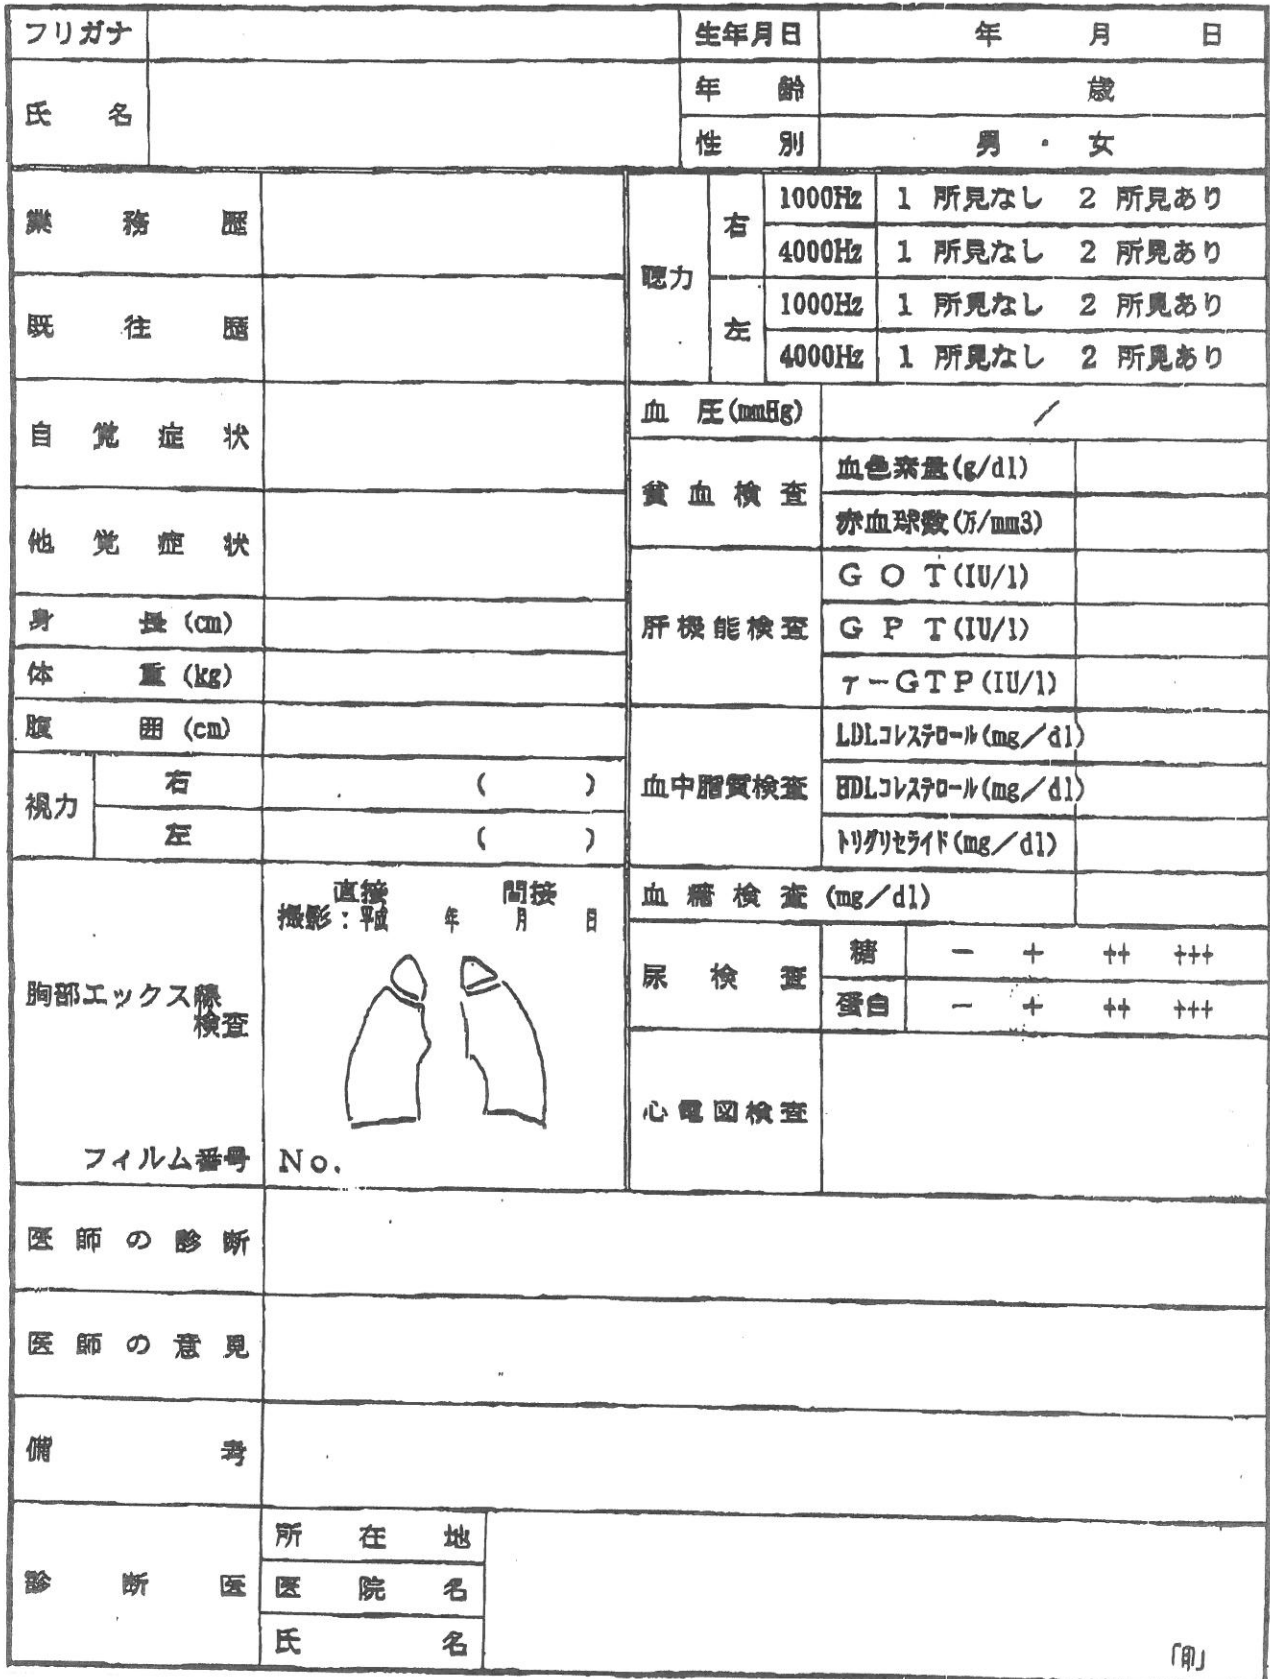 フリガナ 生年月日 年 月 日
氏 名 年 齢 歳
性 別 男 ・ 女
業 務 歴
既 往 歴
自 覚 症 状
他 覚 症 状
身 長 (cm)
体 重 (kg)
腹 囲 (cm)
視力 右 ( )
左 ( )
胸部エックス線
検査
フィルム番号
直接 間接
撮影:平成 年 月 日
No.
聴力 右 1000Hz 1 所見なし 2 所見あり
4000Hz 1 所見なし 2 所見あり
左 1000Hz 1 所見なし 2 所見あり
4000Hz 1 所見なし 2 所見あり
血 圧(mmHg) /
貧 血 検 査 血色素量(g/dl)
赤血球数(万/mm3)
肝機能検査 G O T(IU/l)
G P T(IU/l)
γ-GTP(IU/l)
血中脂質検査 LDLコレステロール(mg/dl)
HDLコレステロール(mg/dl)
トリグリセライド(mg/dl)
血 糖 検 査 (mg/dl)
尿 検 査 糖 - + ++ +++
蛋白 - + ++ +++
心電図検査
医 師 の 診 断
医 師 の 意 見
備 考
診 断 医 所 在 地
医 院 名
氏 名
印